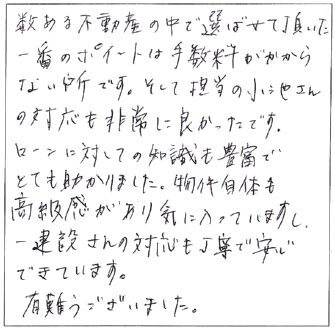 数ある不動産の中で選ばせて頂いた
一番のポイントは手数料がかから
ない所です。そして担当の小池さん
の対応も非常に良かったです。
ローンに対しての知識も豊富で
とても助かりました。物件自体も
高級感があり気に入っていますし、
一建設さんの対応も丁寧で安心
できています。
有難うございました。